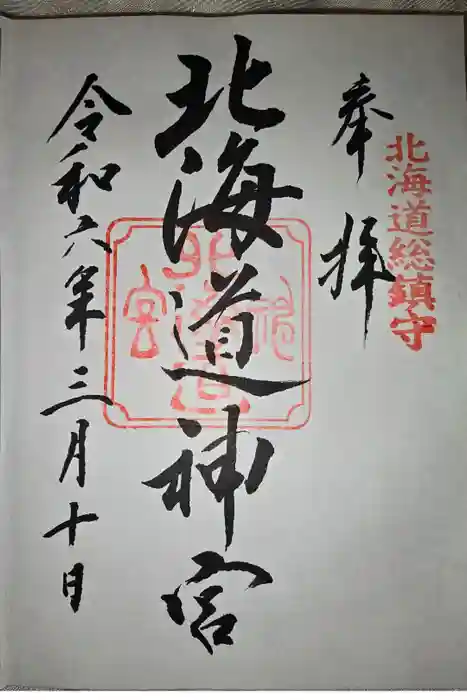 北海道総鎮守
奉拝
北海道神宮
令和六年三月十日